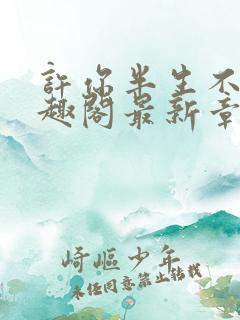 許你半生不
趣閣最新章
崎嶇少年
未经同意禁止转载